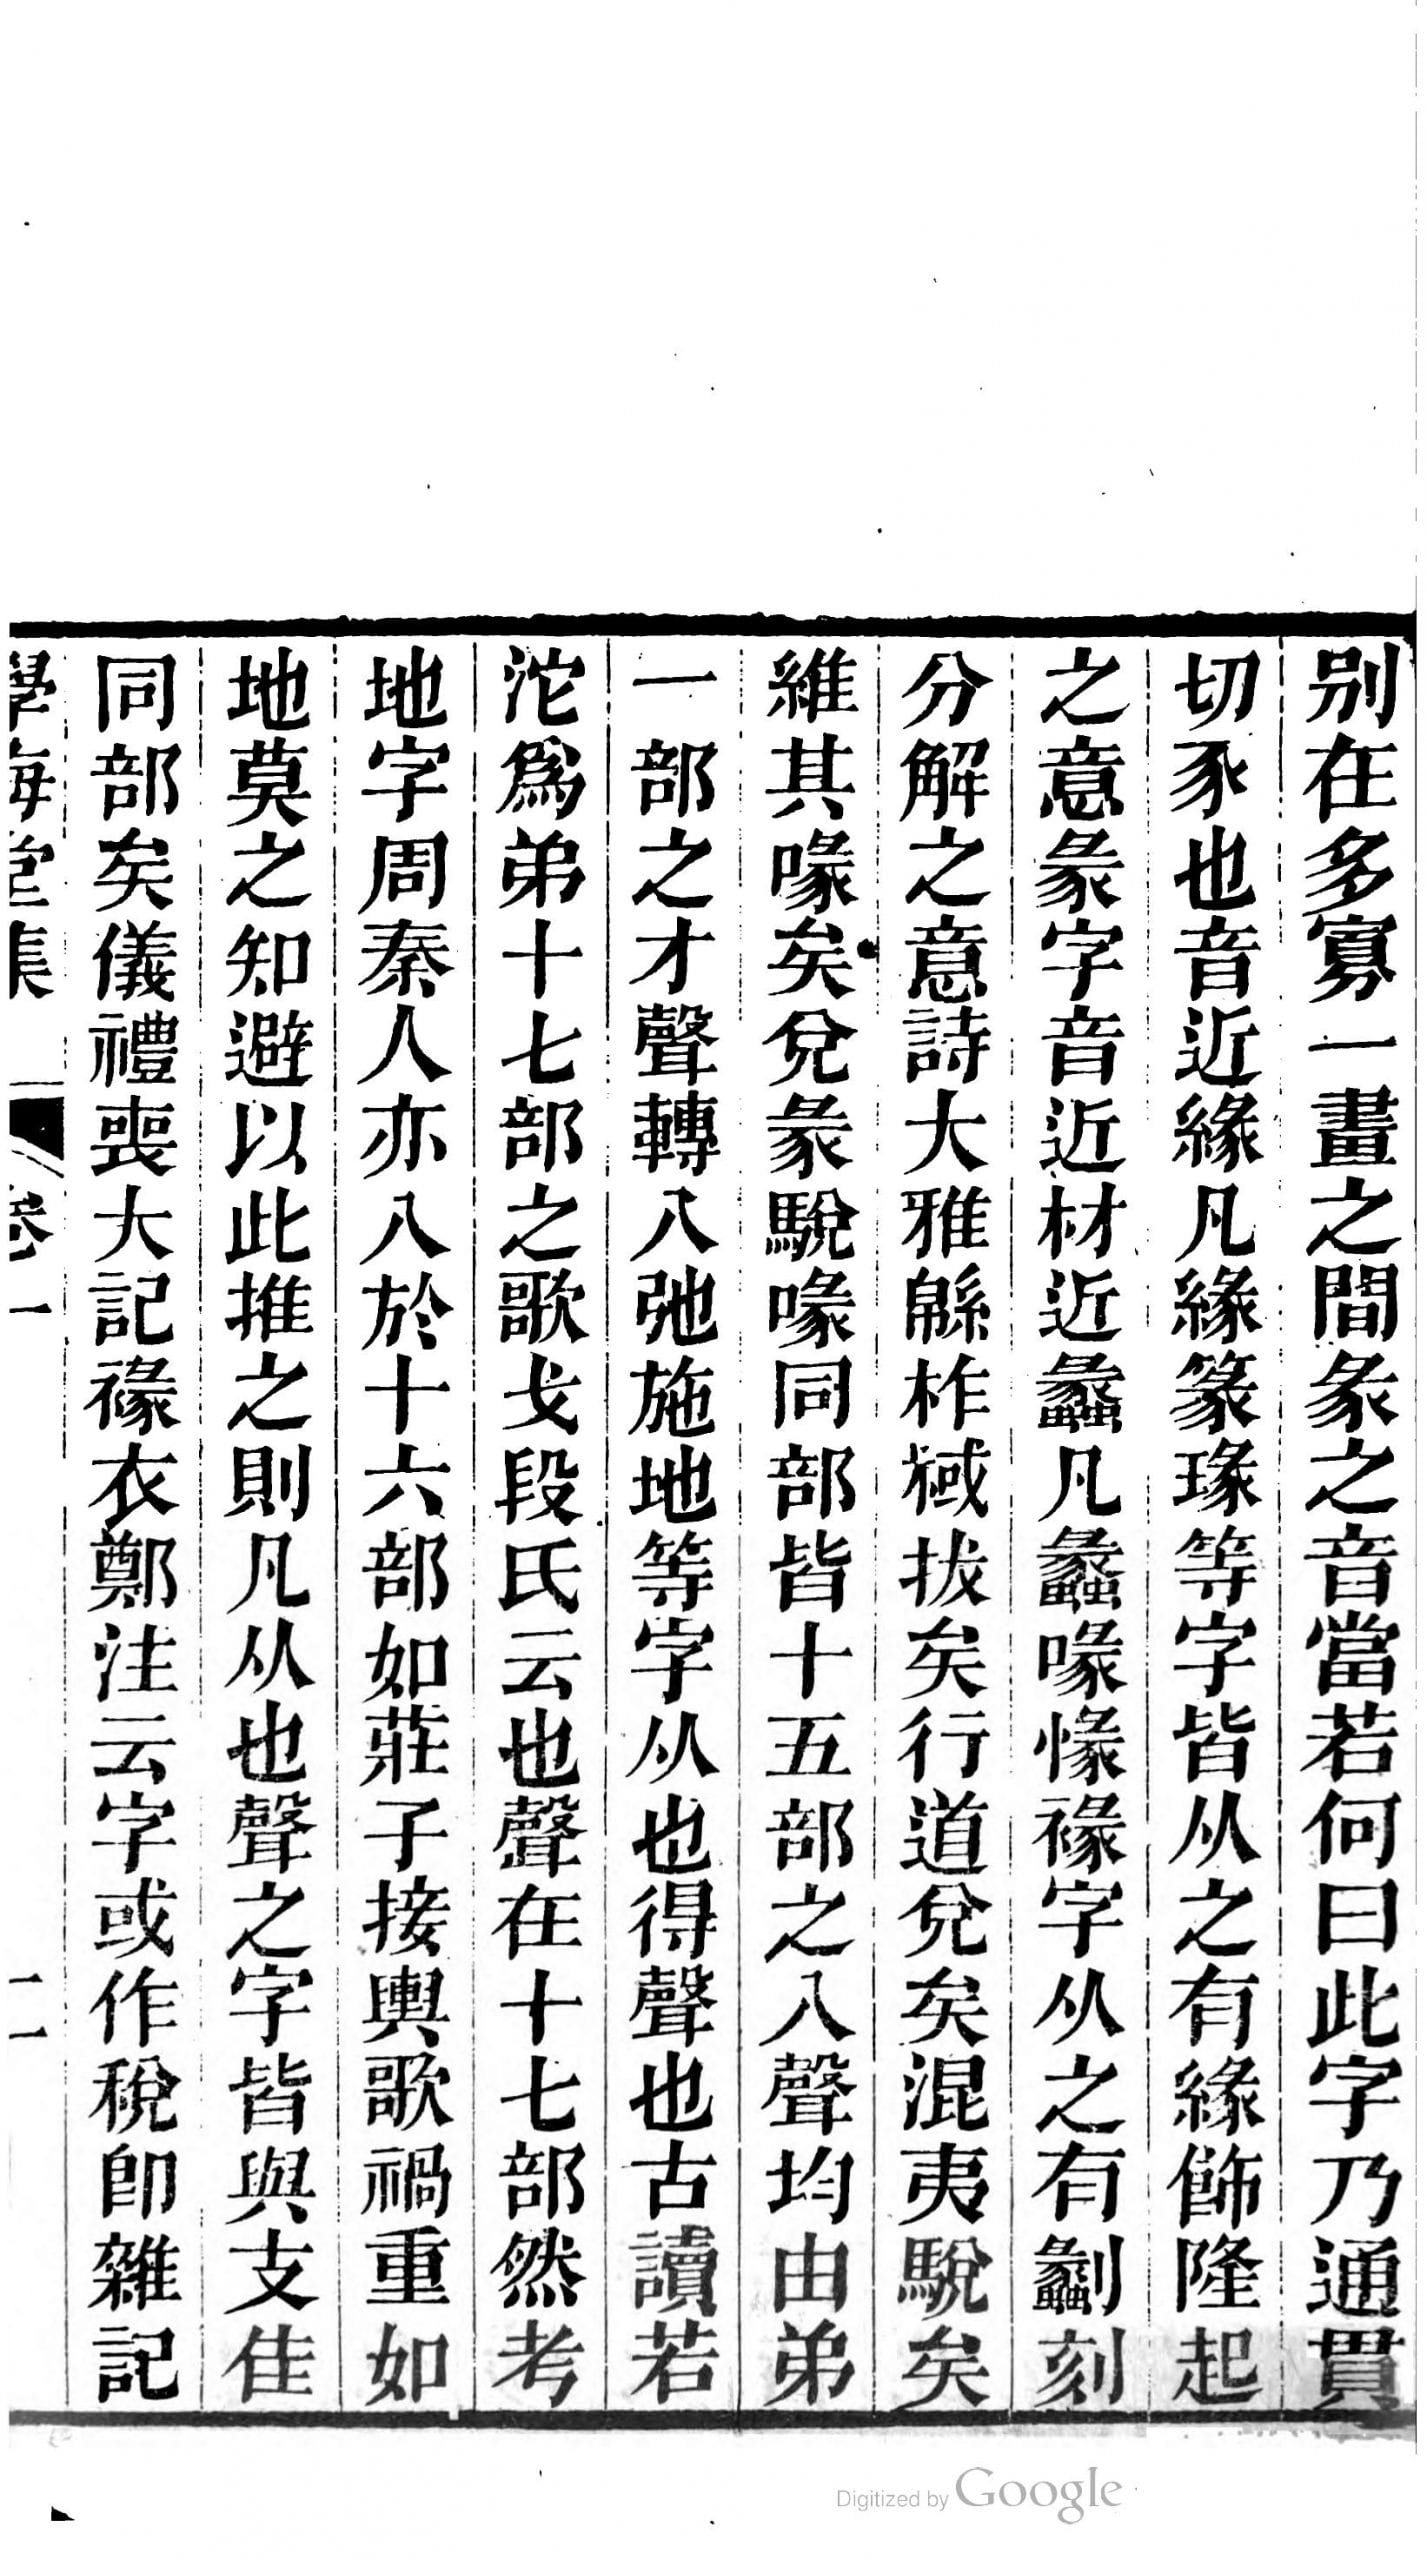 别在多寡一畫之間彖之音當若何曰此字乃通貫
切豕也音近緣凡緣篆瑑等字皆从之有緣飾隆起
之意彖字音近材近蠡凡蠡喙㥟褖字从之有劙刻
分解之意詩大雅緜柞棫拔矣行道兌矣混夷駾矣
維其喙矣兌彖駾喙同部皆十五部之入聲均由弟
一部之才聲轉入弛施地等字从也得聲也古讀若
沱爲弟十七部之歌戈段氏云也聲在十七部然考
地字周秦人亦入於十六部如莊子接輿歌禍重如
地莫之知避以此推之則凡从也聲之字皆與支佳
同部矣儀禮喪大記褖衣鄭注云字或作稅卽雜記
學海堂集 卷一 二
Digitized by Google